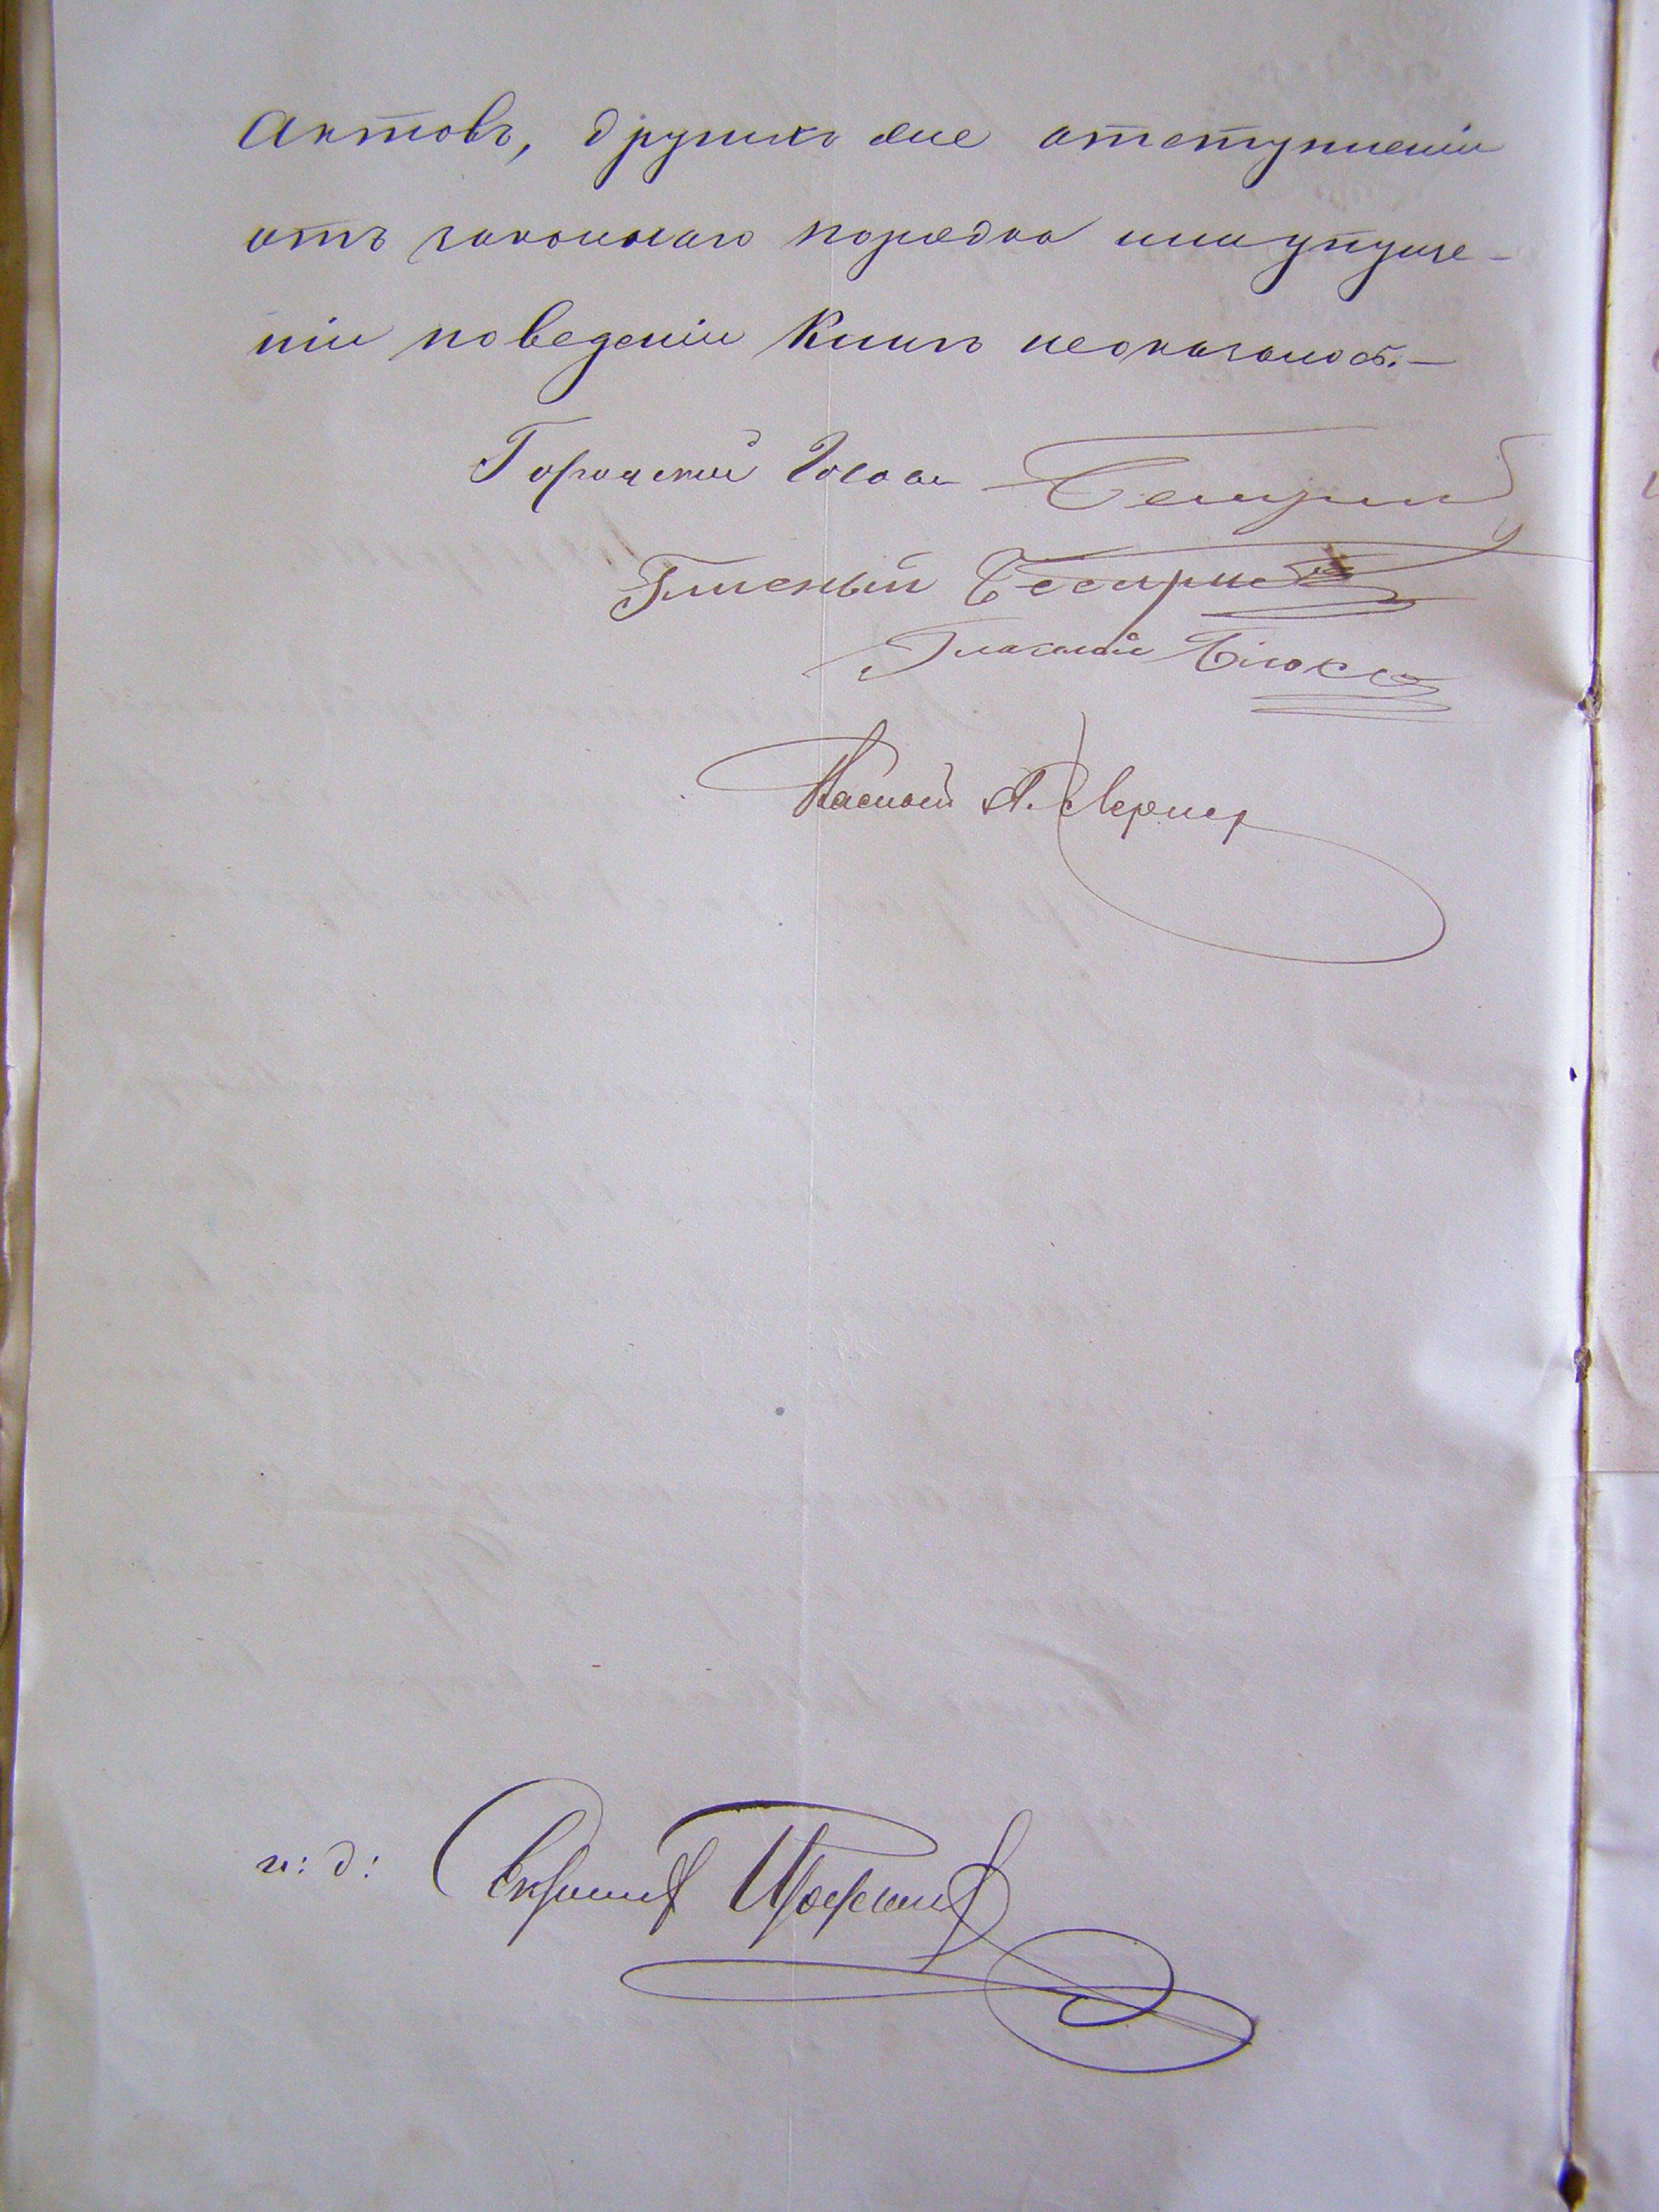 Актовъ, другихъ же отступленiи
отъ законнаго порядка или упуще-
нiи по веденiи Книгъ неоказалось.-
Городской Голова
Гласный
Гласный
Гласный А. Лернер
и: д: Секретаря